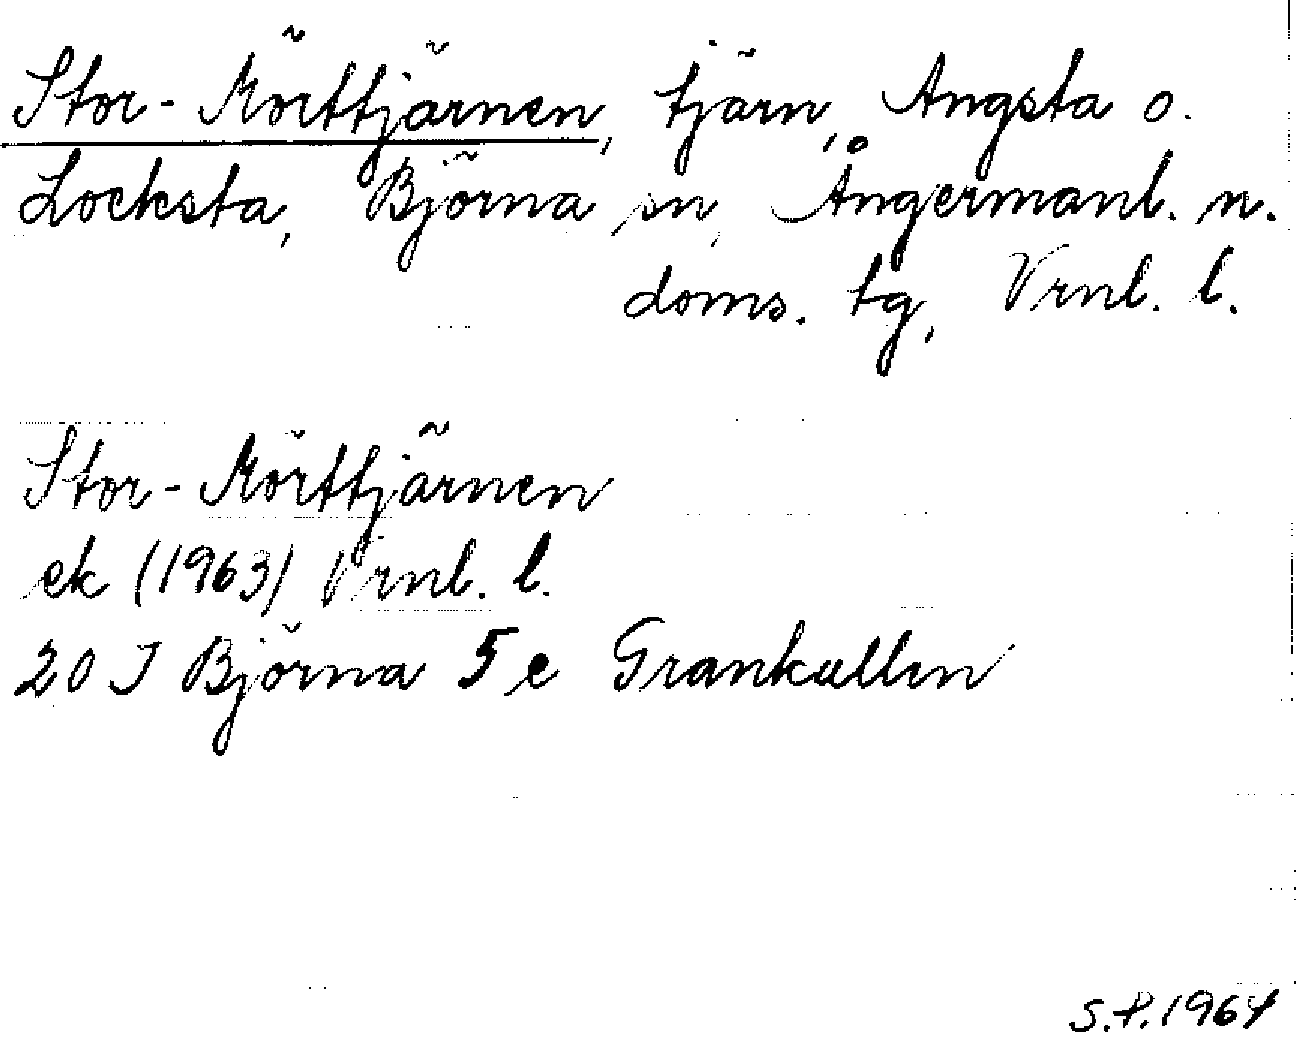 Stor-Mörttjärnen, tjärn, Angsta o.
Locksta, Björna sn, Ångermanl. n.
doms. tg, Vrnl. l.
Stor-Mörttjärnen
ek (1963) Vrnl. l.
20 J Björna 5 e Grankullen
S.P. 1964